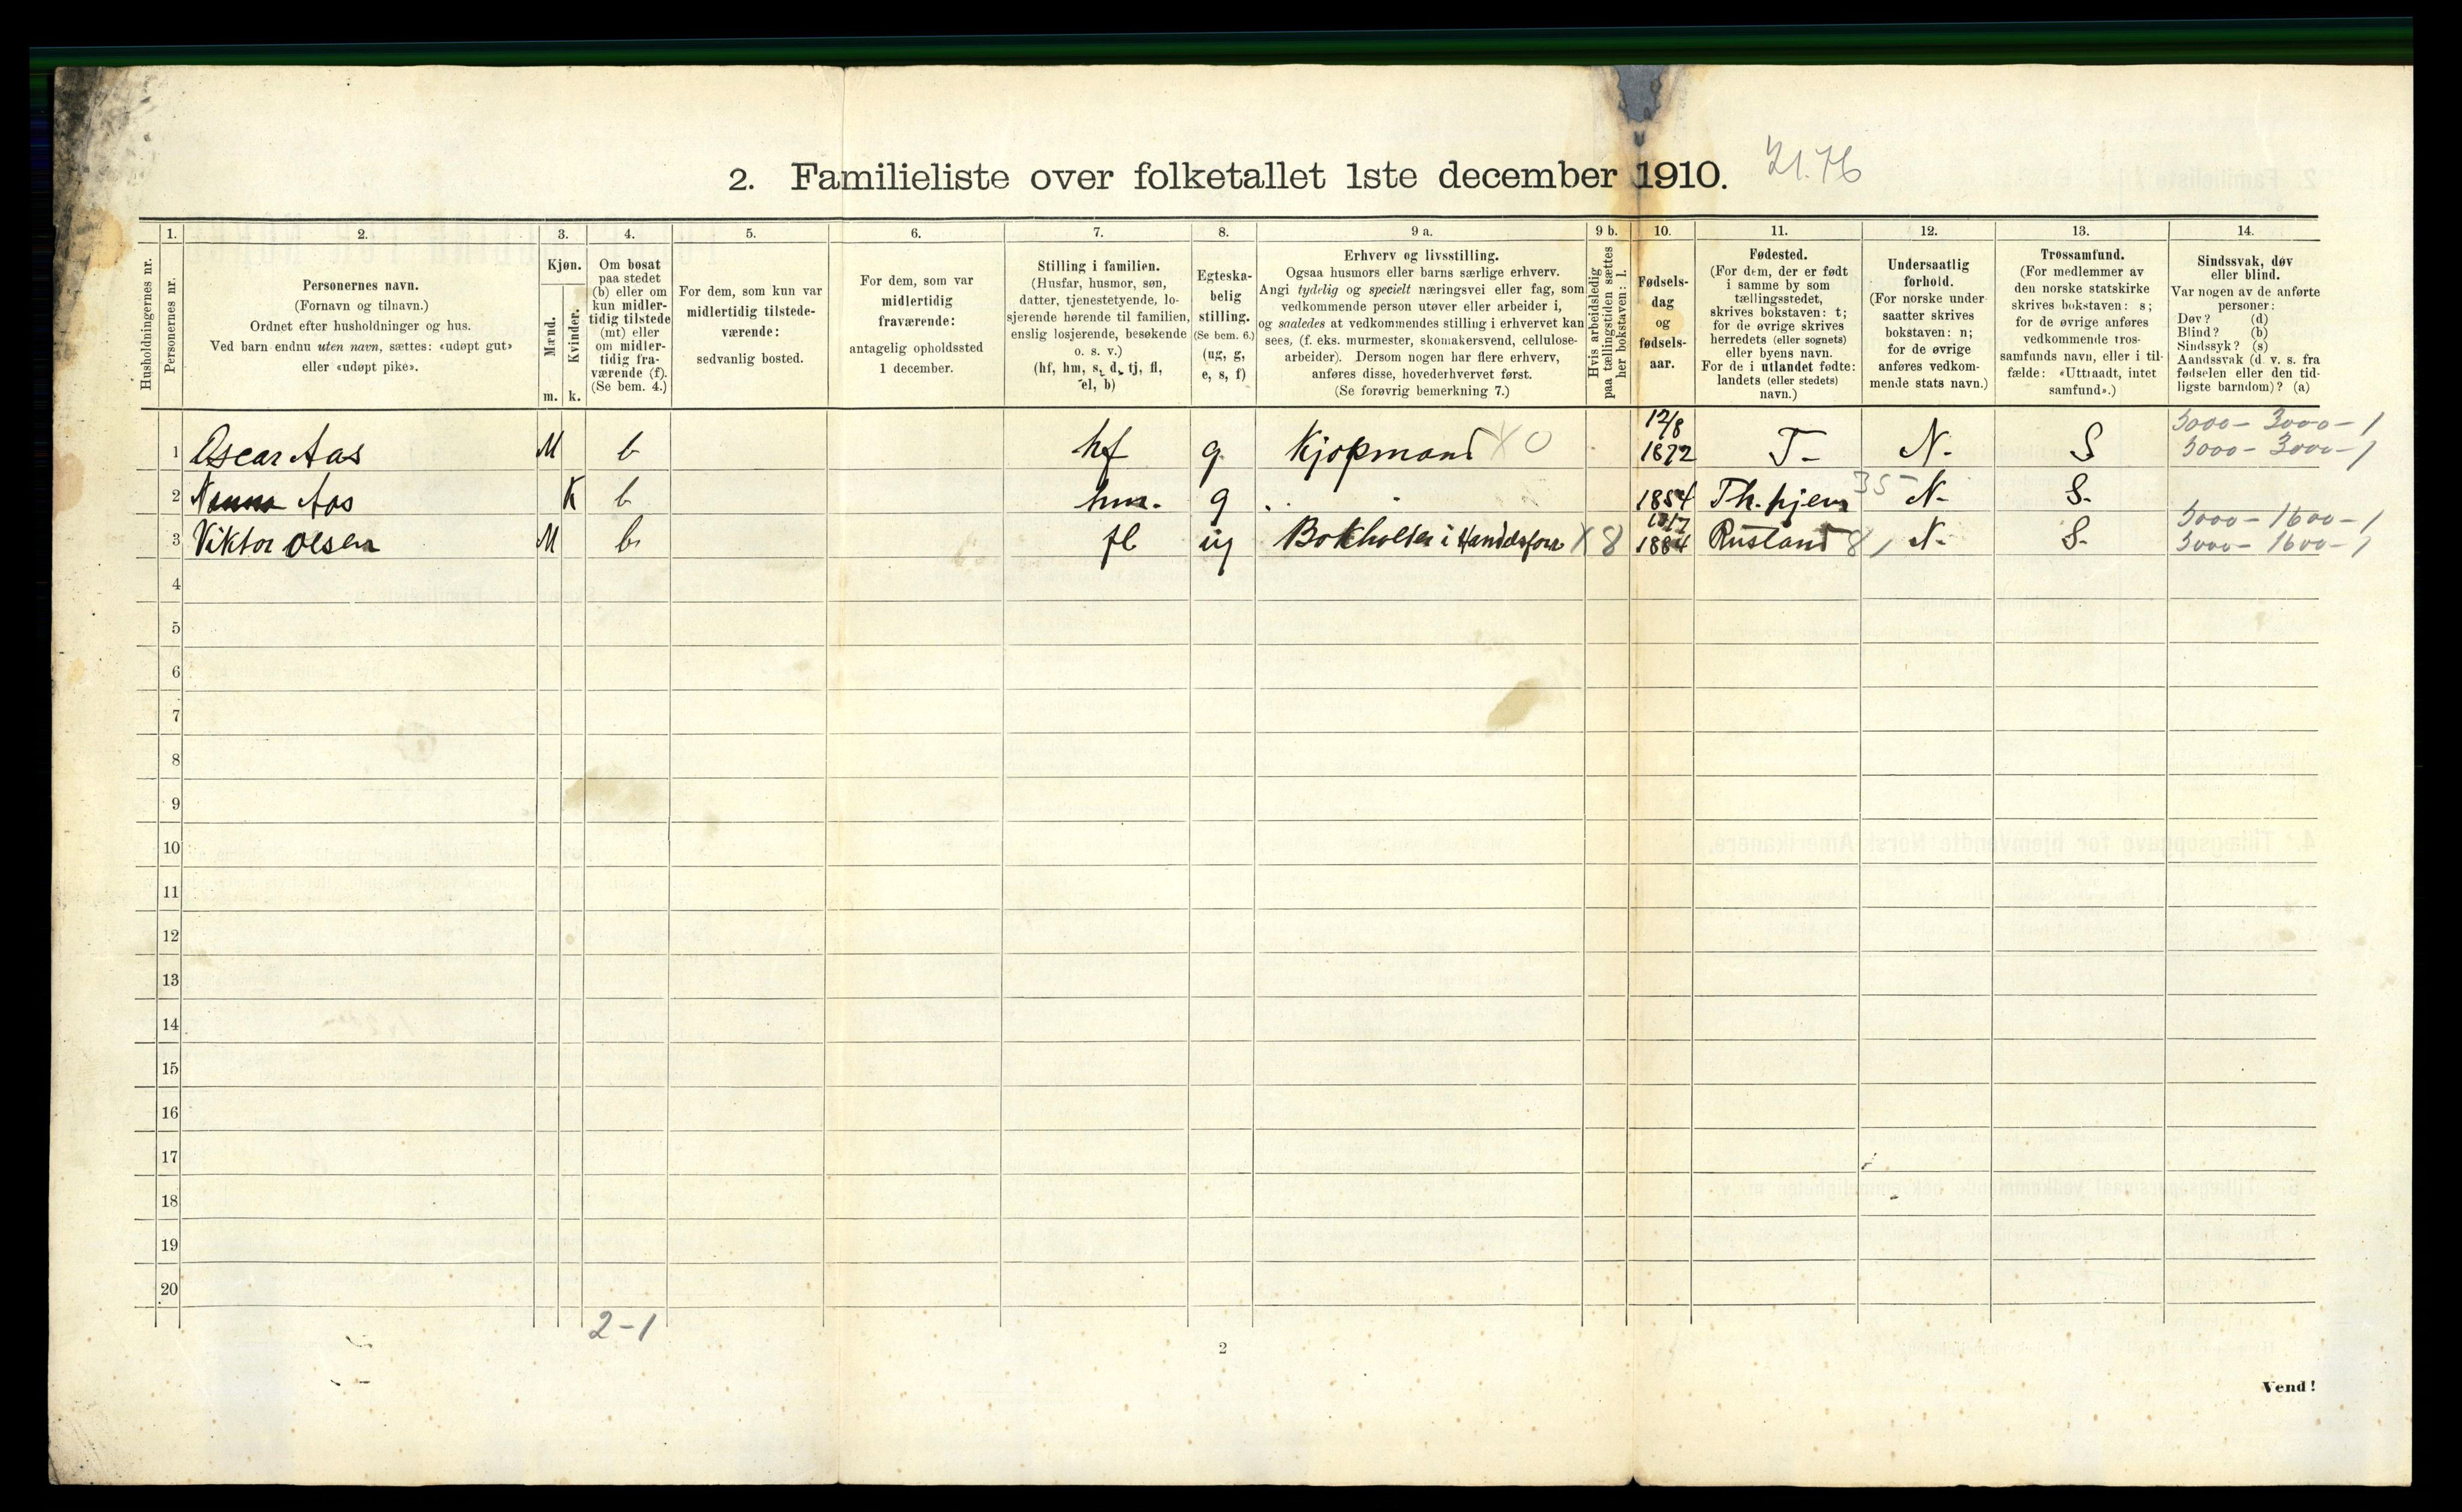 2. Familieliste over folketallet 1ste december 1910.
21.76
1. 2. 3. 4. 5. 6. 7. 8. 9 a. 9 b. 10. 11. 12. 13. 14.
Husholdningernes nr.
Personernes nr.
Personernes navn.
(Fornavn og tilnavn.)
Ordnet efter husholdninger og hus.
Ved barn endnu uten navn, sættes: «udøpt gut»
eller «udøpt pike».
Kjøn.
Mænd.
Kvinder.
m. k.
Om bosat
paa stedet
(b) eller om
kun midler-
tidig tilstede
(mt) eller
om midler-
tidig fra-
værende (f).
(Se bem. 4.)
For dem, som kun var
midlertidig tilstede-
værende:
sedvanlig bosted.
For dem, som var
midlertidig
fraværende:
antagelig opholdssted
1 december.
Stilling i familien.
(Husfar, husmor, søn,
datter, tjenestetyende, lo-
sjerende hørende til familien,
enslig losjerende, besøkende
o. s. v.)
(hf, hm, s, d, tj, fl,
el, b)
Egteska-
belig
stilling.
(Se bem. 6.)
(ug, g,
e, s, f)
Erhverv og livsstilling.
Ogsaa husmors eller barns særlige erhverv.
Angi tydelig og specielt næringsvei eller fag, som
vedkommende person utøver eller arbeider i,
og saaledes at vedkommendes stilling i erhvervet kan
sees, (f. eks. murmester, skomakersvend, cellulose-
arbeider). Dersom nogen har flere erhverv,
anføres disse, hovederhvervet først.
(Se forøvrig bemerkning 7.)
Hvis arbeidsledig
paa tællingstiden sættes
her bokstaven: l.
Fødsels-
dag
og
fødsels-
aar.
Fødested.
(For dem, der er født
i samme by som
tællingsstedet,
skrives bokstaven: t;
for de øvrige skrives
herredets (eller sognets)
eller byens navn.
For de i utlandet fødte:
landets (eller stedets)
navn.)
Undersaatlig
forhold.
(For norske under-
saatter skrives
bokstaven: n;
for de øvrige
anføres vedkom-
mende stats navn.)
Trossamfund.
(For medlemmer av
den norske statskirke
skrives bokstaven: s;
for de øvrige anføres
vedkommende tros-
samfunds navn, eller i til-
fælde: «Uttraadt, intet
samfund».)
Sindssvak, døv
eller blind.
Var nogen av de anførte
personer:
Døv? (d)
Blind? (b)
Sindssyk? (s)
Aandssvak (d. v. s. fra
fødselen eller den tid-
ligste barndom)? (a)
12/8 3000 - 3000 - 1
1 Oscar Aas M b hf g Kjøpmand X 0 1872 T- N- S 3000 - 3000 - 1
2 Aas K b hm. g 1884 Th.hjem 35 N- S-
3000 - 1600 - 1
3 Viktor Olsen M b fl ug Bokholder i X 8 1884 Rusland 81 N- S- 3000 - 1600 - 1
4
5
6
7
8
9
10
11
12
13
14
15
16
17
18
19
20
2-1
2
Vend!